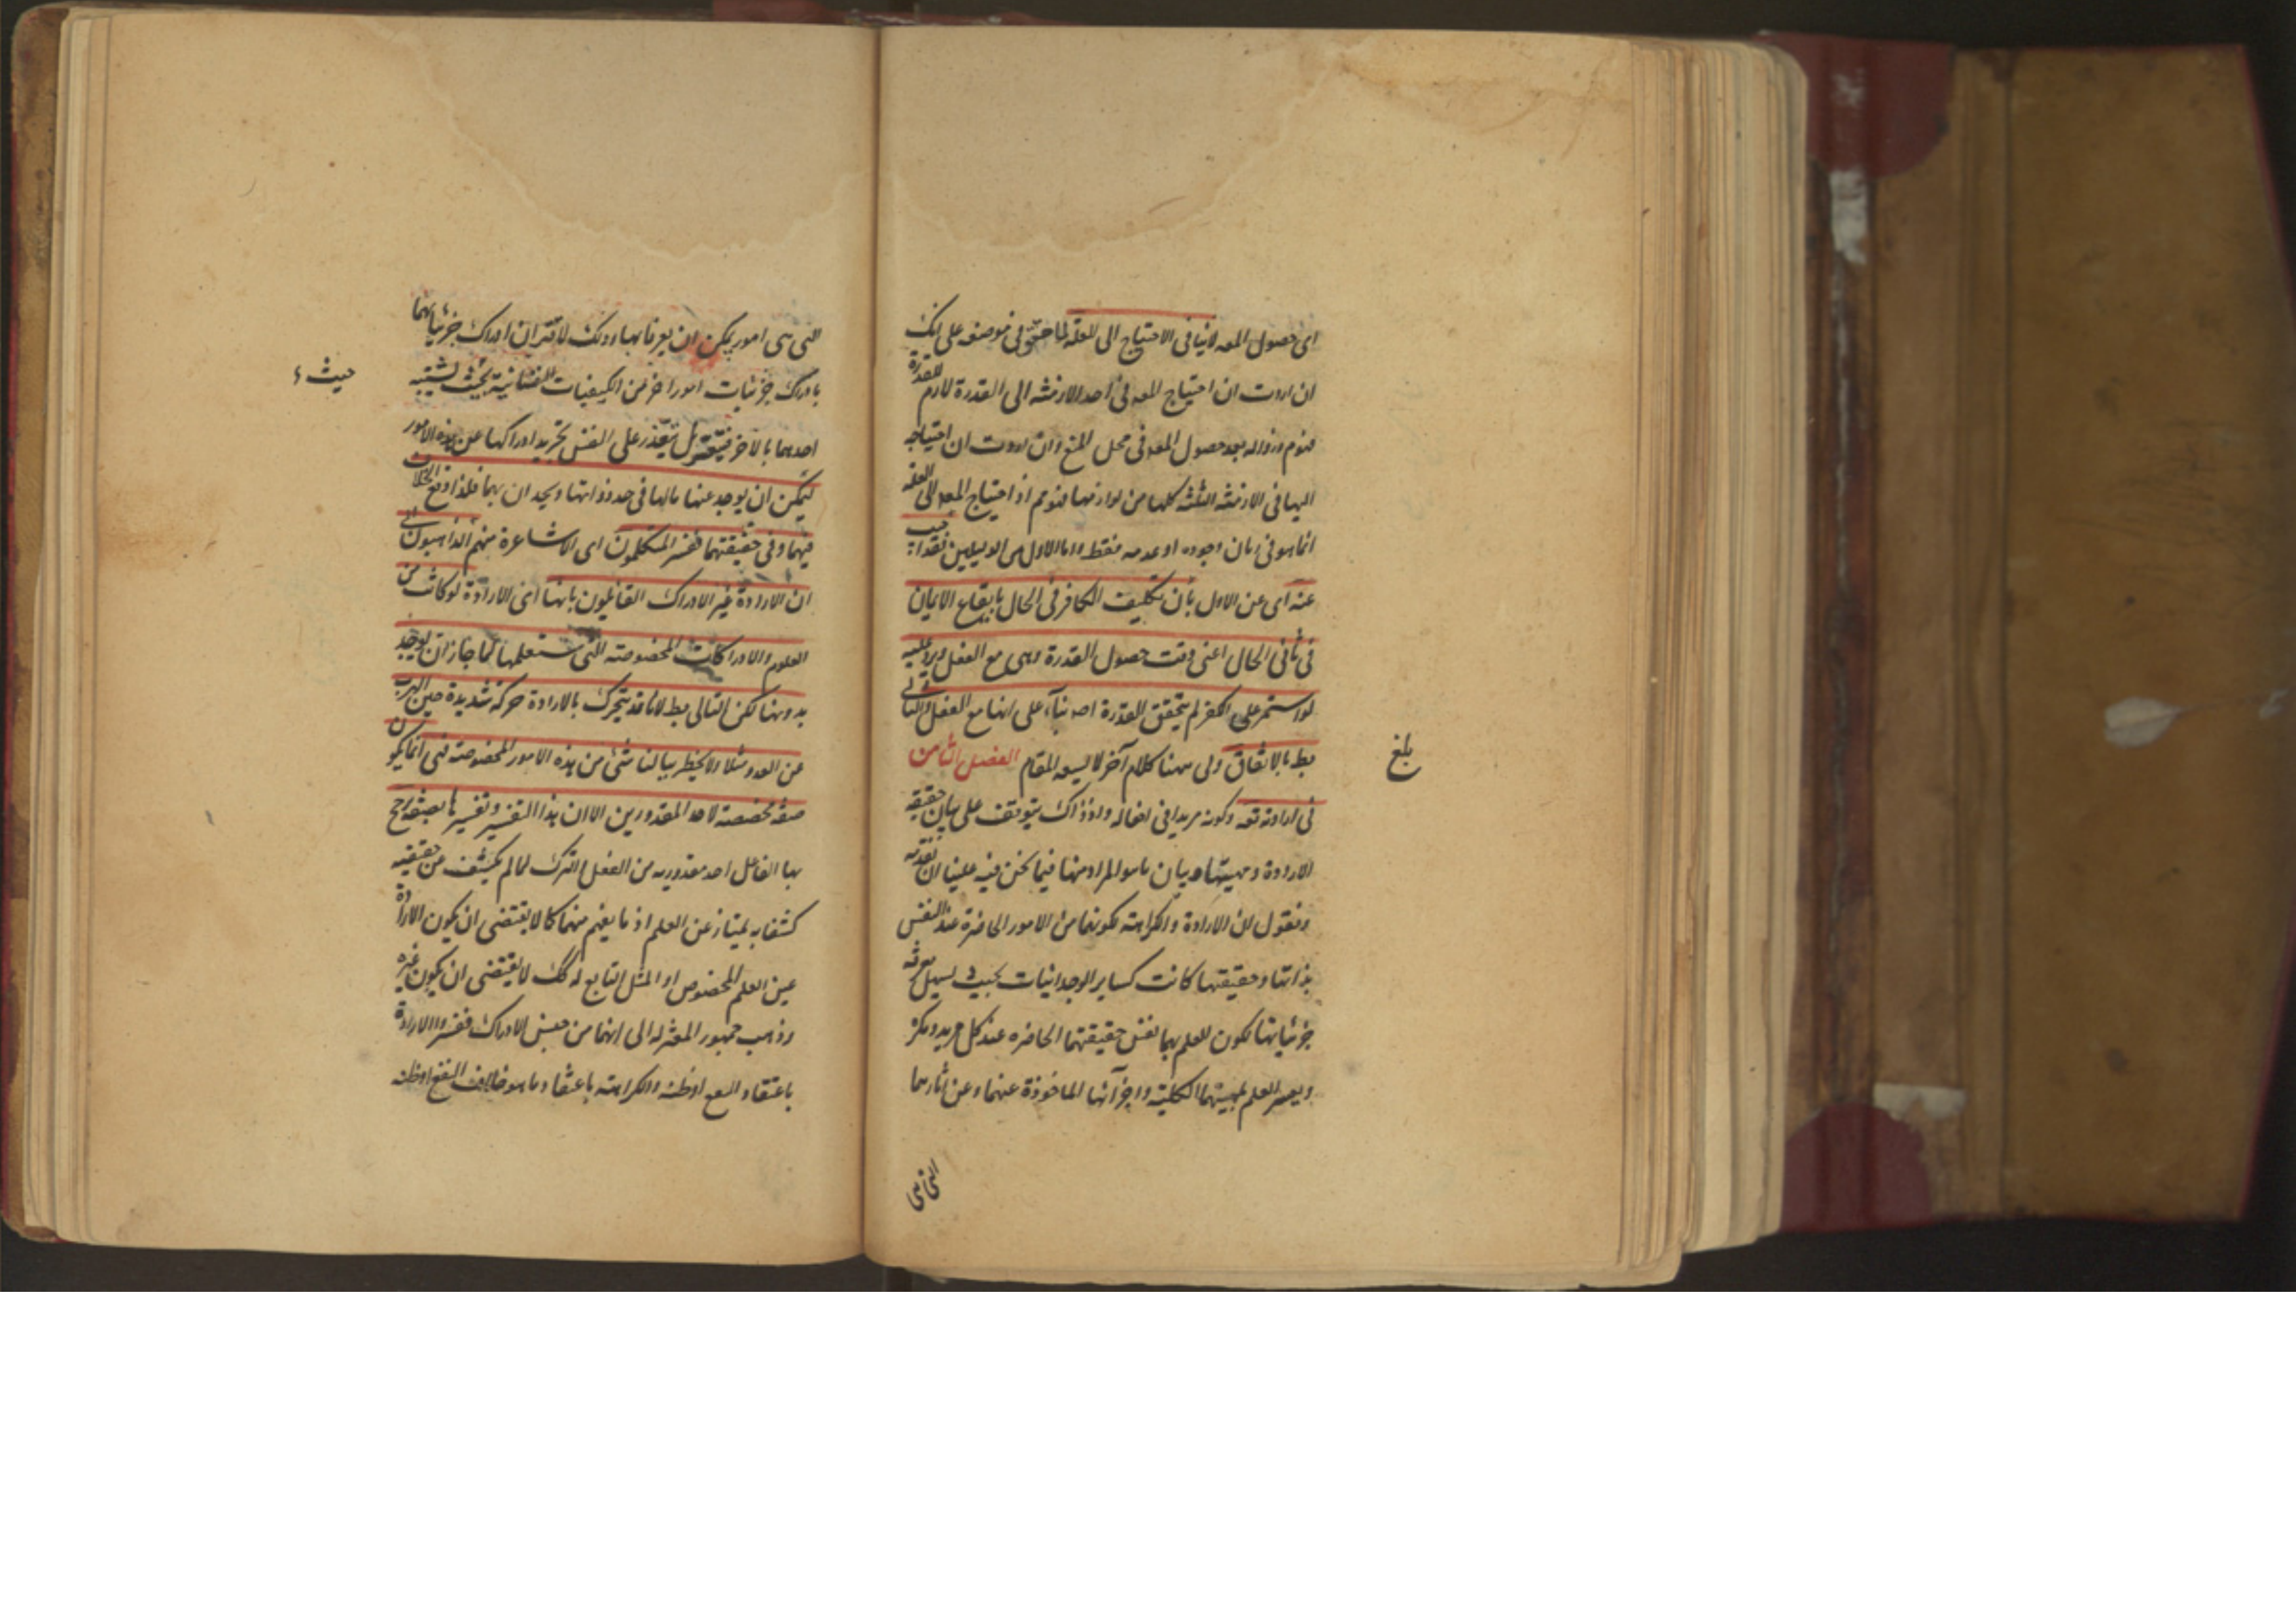 اى حصول المعه لا ينافى الاحتياج الى العلة لما حقق فى موضعه على انك
ان اردت ان احتياج المعه فى احد الازمنة الى القدرة لازم للقدرة
فنوم وزواله بعد حصول المعه فى محل المنع وان اردت ان احتياجه
اليها فى الازمنة الثلثة كلها من لوازمها فنوم اذ احتياج المعه الى العلة
انما هو فى زمان وجوده او عدمه فقط واما الاول من الدليلين فقد اجيب
عنه اى عن الاول بأن تكليف الكافر فى الحال بايقاع الايمان
فى ثانى الحال اعنى وقت حصول القدرة وهى مع الفعل ويرد عليه
لو استمر على الكفر لم يتحقق القدرة اصه بناء على انها مع الفعل والتالى
بط بالاتفاق ولى ههنا كلام آخر لا يسعه المقام الفصل الثامن
بلغ
فى ارادته تعه وكونه مريدا فى افعاله واذ ذاك يتوقف على بيان حقيقة
الارادة ومهيتها وبيان ما هو المراد منها فيما نحن فيه علينا ان نقدمه
ونقول ان الارادة والكراهة لكونهما من الامور الحاضرة عند النفس
بذاتها وحقيقتها كانت كساير الوجدانيات بحيث يسهل معرفة
جزئياتها لكون العلم بهما نفس حقيقتهما الحاضرة عند كل مريد ومكره
ويعسر العلم بمهيتهما الكلية واجزآئها الماخوذة عنهما وعن آثارهما
التى هى
التى هى امور يمكن ان يعرفا بها وذلك لاقتران ادراك جزئياتهما
بادراك جزئيات امور اخر من الكيفيات النفسانية بحيث يشتبه
حيث
احدهما بالاخر فيتعسر بل يتعذر على النفس تجريد ادراكها عن هذه الامور
ليمكن ان يوجد عنها مالها فى حد ذواتها ويحدان بهما فلذا وقع الخلاف
فيهما وفى حقيقتهما ففسر المتكلمون اى الاشاعرة منهم الذاهبون الى
ان الارادة غير الادراك القائلون بانها اى الارادة لو كانت من
العلوم والادراكات المخصوصة التى ستعلمها لما جاز ان يوجد
بدونها لكن التالى بط لانا قد يتحرك بالارادة حركة شديدة حين الهرب
عن العدو مثلا ولا يخطر ببالنا شئ من هذه الامور المخصوصة فهى انما يكون
صفة مخصصة لاحد المقدورين الا ان هذا التفسير وتفسيرها بصفة يرجح
بها الفاعل احد مقدوريه من الفعل والترك لما لم يكشف من حقيقته
كشفا به يمتاز عن العلم اذ ما يفهم منهما كما لا يقتضى ان يكون الارادة
عين العلم المخصوص او الميل التابع له كك لا يقتضى ان يكون غيره
وذهب جمهور المعتزلة الى انهما من جنس الادراك ففسروا الارادة
باعتقاد النفع او ظنه والكراهة باعتقاد ما هو خلاف النفع او ظنه